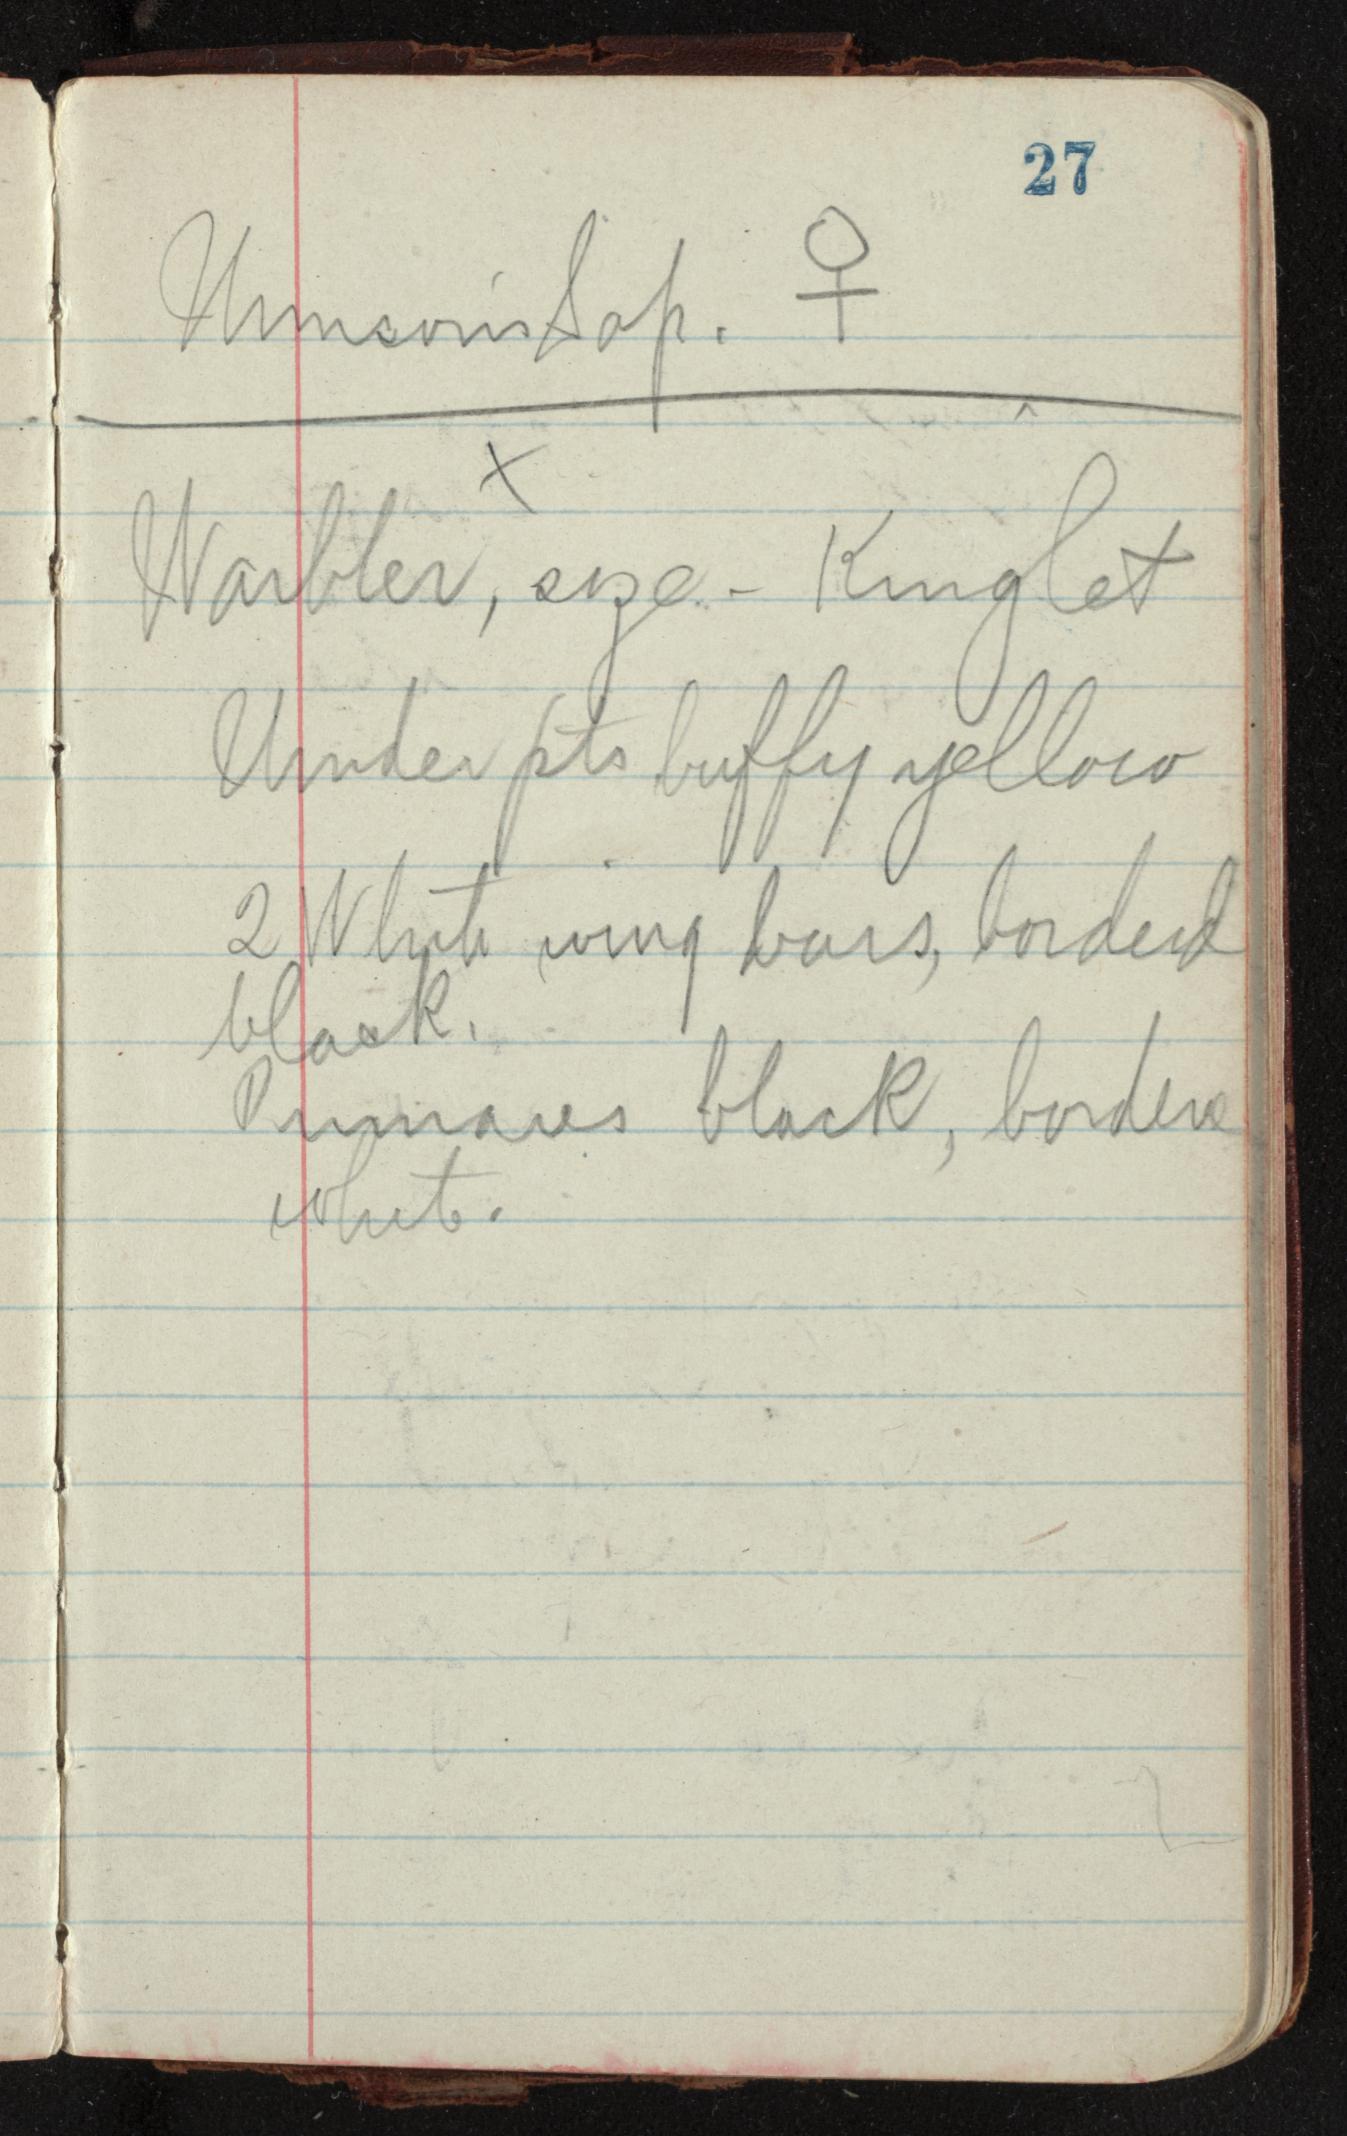 27
Sap. ♀
x
Warbler, size - Kinglet
Under pts buffy yellow
2 White wing bars, borderd
black.
Primaries black, bordere
white.